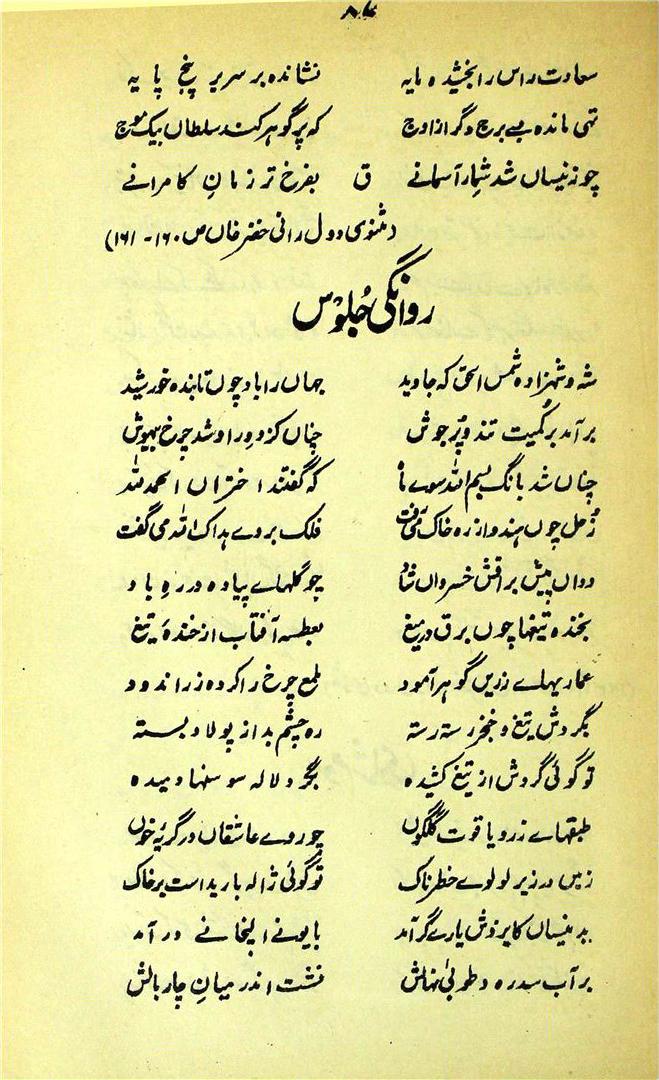 ۸۴
سعادت راس را بخشیدہ مایہ نشاندہ بر سریر پنج پایہ
تہی ماندہ بے برج دگر از اوج کہ پر گوہر کند سلطاں بیک موج
چو زنیساں شد شمار آسمانے ق بفرخ تر زمانِ کامرانے
(مثنوی دول رانی خضر خاں ص ۱۶۰ - ۱۶۱)
روانگی جُلوس
شہ و شہزادہ شمس الحق کہ جاوید جہاں را باد چوں تابندہ خورشید
برآمد بر کمیت تند و پُر جوش چناں کز دور او شد چرخ بیہوش
چناں شد بانگ بسم اللہ سوے ماہ کہ گفتند اختراں الحمد للہ
زحل چوں ہندو از رہ خاک می رفت فلک بر وے ہداک اللہ می گفت
دواں پیش براقش خسرواں شاد چو گلہاے پیادہ در رہِ باد
بخندہ تیغہا چوں برق در میغ بعطسہ آفتاب از خندۂ تیغ
عماریہاے زریں گوہر آمود ملمع چرخ را کردہ زر اندود
بگردش تیغ و خنجر رستہ رستہ رہ چشم بد از پولاد بستہ
تو گوئی گردش از تیغ کشیدہ بگرد لالہ سوسنہا دمیدہ
طبقہاے زر و یاقوت گلگوں چو روے عاشقاں در گریۂ خوں
زمیں در زیر لولوے خطرناک تو گوئی ژالہ باریداست بر خاک
بدینساں کایزدش یارے گر آمد بایونے الپخانے در آمد
بر آب سدرہ و طوبیٰ نہالش نشست اندر میانِ چار بالش